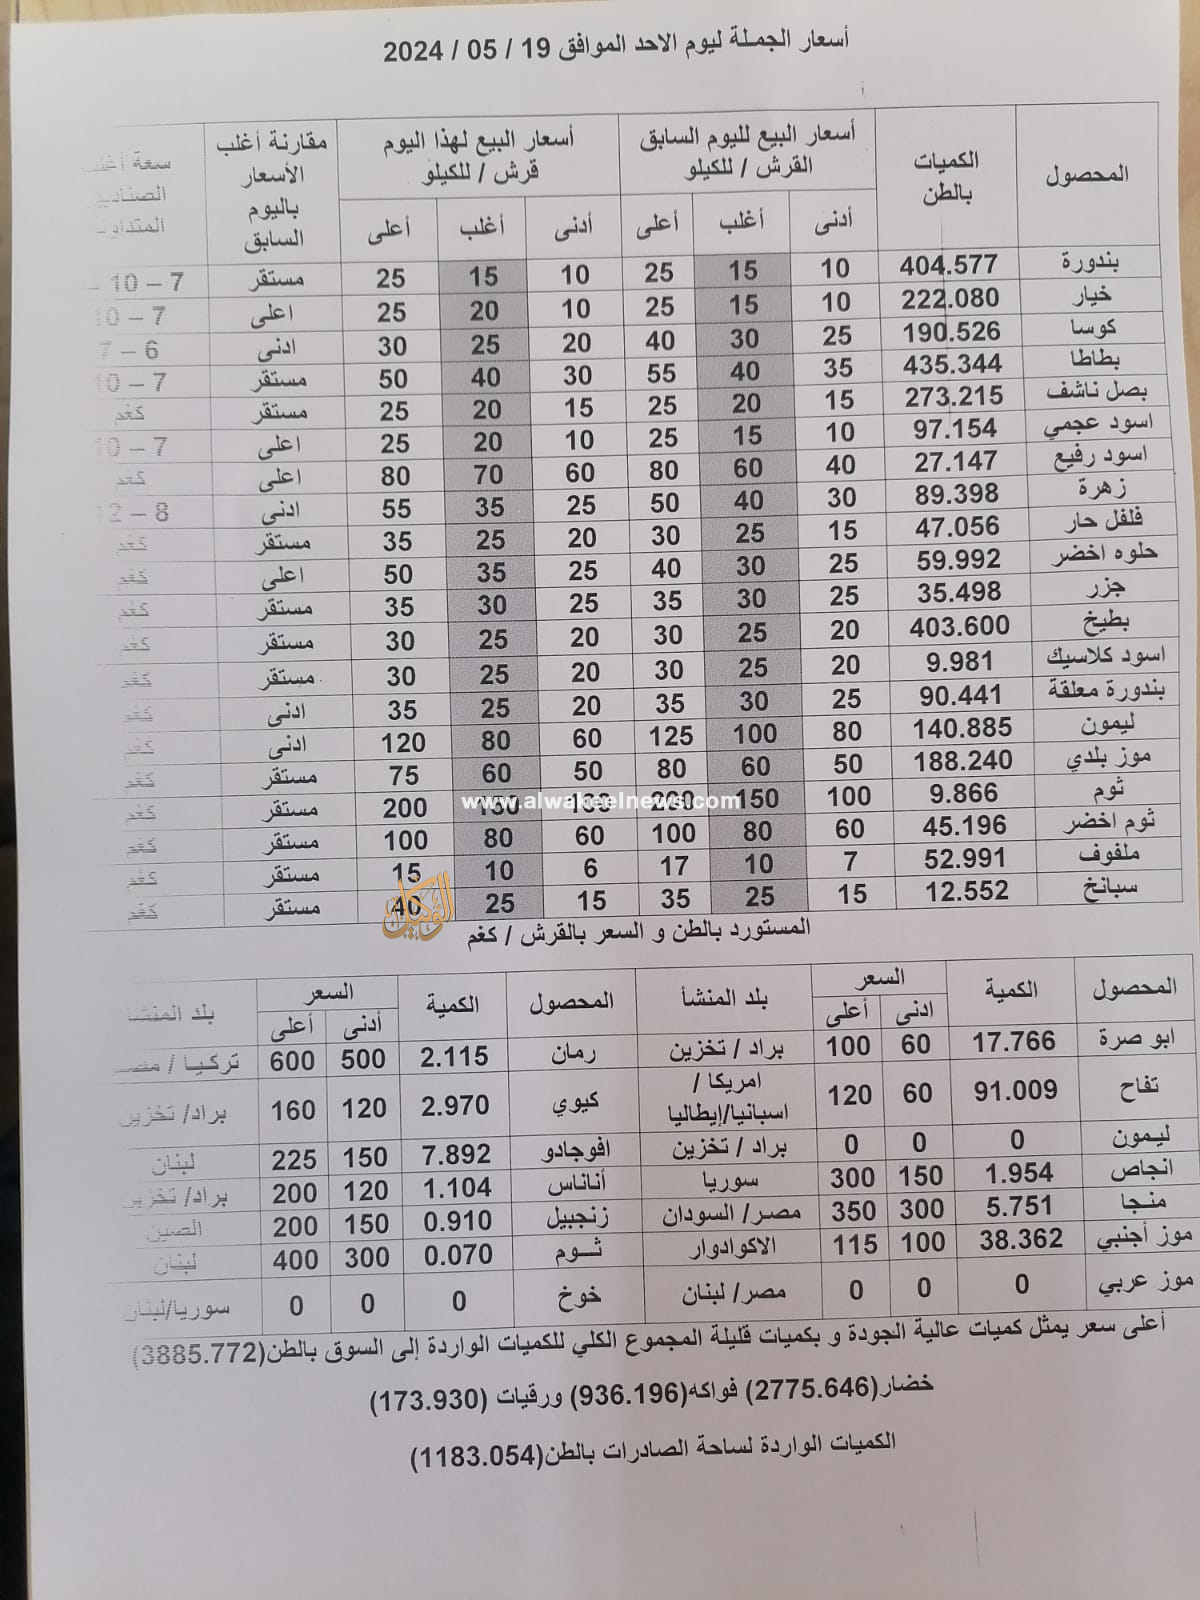 أسعار الجملة ليوم الاحد الموافق 19 / 05 / 2024
المحصول الكميات بالطن أسعار البيع لليوم السابق القرش / للكيلو أسعار البيع لهذا اليوم قرش / للكيلو مقارنة أغلب الأسعار باليوم السابق سعة
أدنى أغلب أعلى أدنى أغلب أعلى
بندورة 404.577 10 15 25 10 15 25 مستقر 7 – 10
خيار 222.080 10 15 25 10 20 25 اعلى 7 – 10
كوسا 190.526 25 30 40 20 25 30 ادنى 6 – 7
بطاطا 435.344 35 40 55 30 40 50 مستقر 7 – 10
بصل ناشف 273.215 15 20 25 15 20 25 مستقر كغم
اسود عجمي 97.154 10 15 25 10 20 25 اعلى 7 – 10
اسود رفيع 27.147 40 60 80 60 70 80 اعلى كغم
زهرة 89.398 30 40 50 25 35 55 ادنى 8 – 12
فلفل حار 47.056 15 25 30 20 25 35 مستقر كغم
حلوه اخضر 59.992 25 30 40 25 35 50 اعلى كغم
جزر 35.498 25 30 35 25 30 35 مستقر كغم
بطيخ 403.600 20 25 30 20 25 30 مستقر كغم
اسود كلاسيك 9.981 20 25 30 20 25 30 مستقر كغم
بندورة معلقة 90.441 25 30 35 20 25 35 ادنى كغم
ليمون 140.885 80 100 125 60 80 120 ادنى كغم
موز بلدي 188.240 50 60 80 50 60 75 مستقر كغم
ثوم 9.866 100 150 200 مستقر كغم
www.alwakeelnews.com
ثوم اخضر 45.196 60 80 100 60 80 100 مستقر كغم
ملفوف 52.991 7 10 17 6 10 15 مستقر كغم
سبانخ 12.552 15 25 35 15 25 40 مستقر كغم
الوكيل
المستورد بالطن و السعر بالقرش / كغم
المحصول الكمية السعر بلد المنشأ المحصول الكمية السعر بلد المنشأ
ادنى أعلى أدنى أعلى
ابو صرة 17.766 60 100 براد / تخزين رمان 2.115 500 600 تركيا /
تفاح 91.009 60 120 امريكا / اسبانيا/إيطاليا كيوي 2.970 120 160 براد/ تخزين
ليمون 0 0 0 براد / تخزين افوجادو 7.892 150 225 لبنان
انجاص 1.954 150 300 سوريا أناناس 1.104 120 200 براد/ تخزين
منجا 5.751 300 350 مصر/ السودان زنجبيل 0.910 150 200 الصين
موز أجنبي 38.362 100 115 الاكوادوار ثوم 0.070 300 400 لبنان
موز عربي 0 0 0 مصر/ لبنان خوخ 0 0 0 سوريا/لبنان
أعلى سعر يمثل كميات عالية الجودة و بكميات قليلة المجموع الكلي للكميات الواردة إلى السوق بالطن(3885.772)
خضار(2775.646) فواكه(936.196) ورقيات (173.930)
الكميات الواردة لساحة الصادرات بالطن(1183.054)